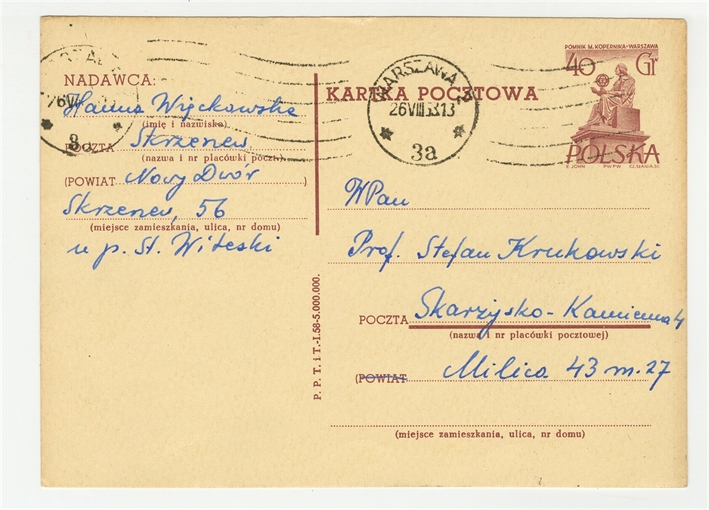 NADAWCA:
Hanna Więckowska
(imię i nazwisko)
POCZTA Skrzenew
(nazwa i nr placówki poczt.)
(POWIAT Nowy Dwór )
Skrzenew, 56
(miejsce zamieszkania, ulica, nr domu)
u p. St. Witeski
P. P. T. i T.-I.58-5.000.000.
KARTKA POCZTOWA
WARSZAWA 2
26 VIII 58 13
3a
POMNIK M. KOPERNIKA-WARSZAWA
40 Gr
POLSKA
S. JOHN PWPW CZ. SŁANIA SC.
WPan
Prof. Stefan Krukowski
POCZTA Skarżysko-Kamienna 4
(nazwa i nr placówki pocztowej)
(POWIAT Milica 43 m. 27
(miejsce zamieszkania, ulica, nr domu)